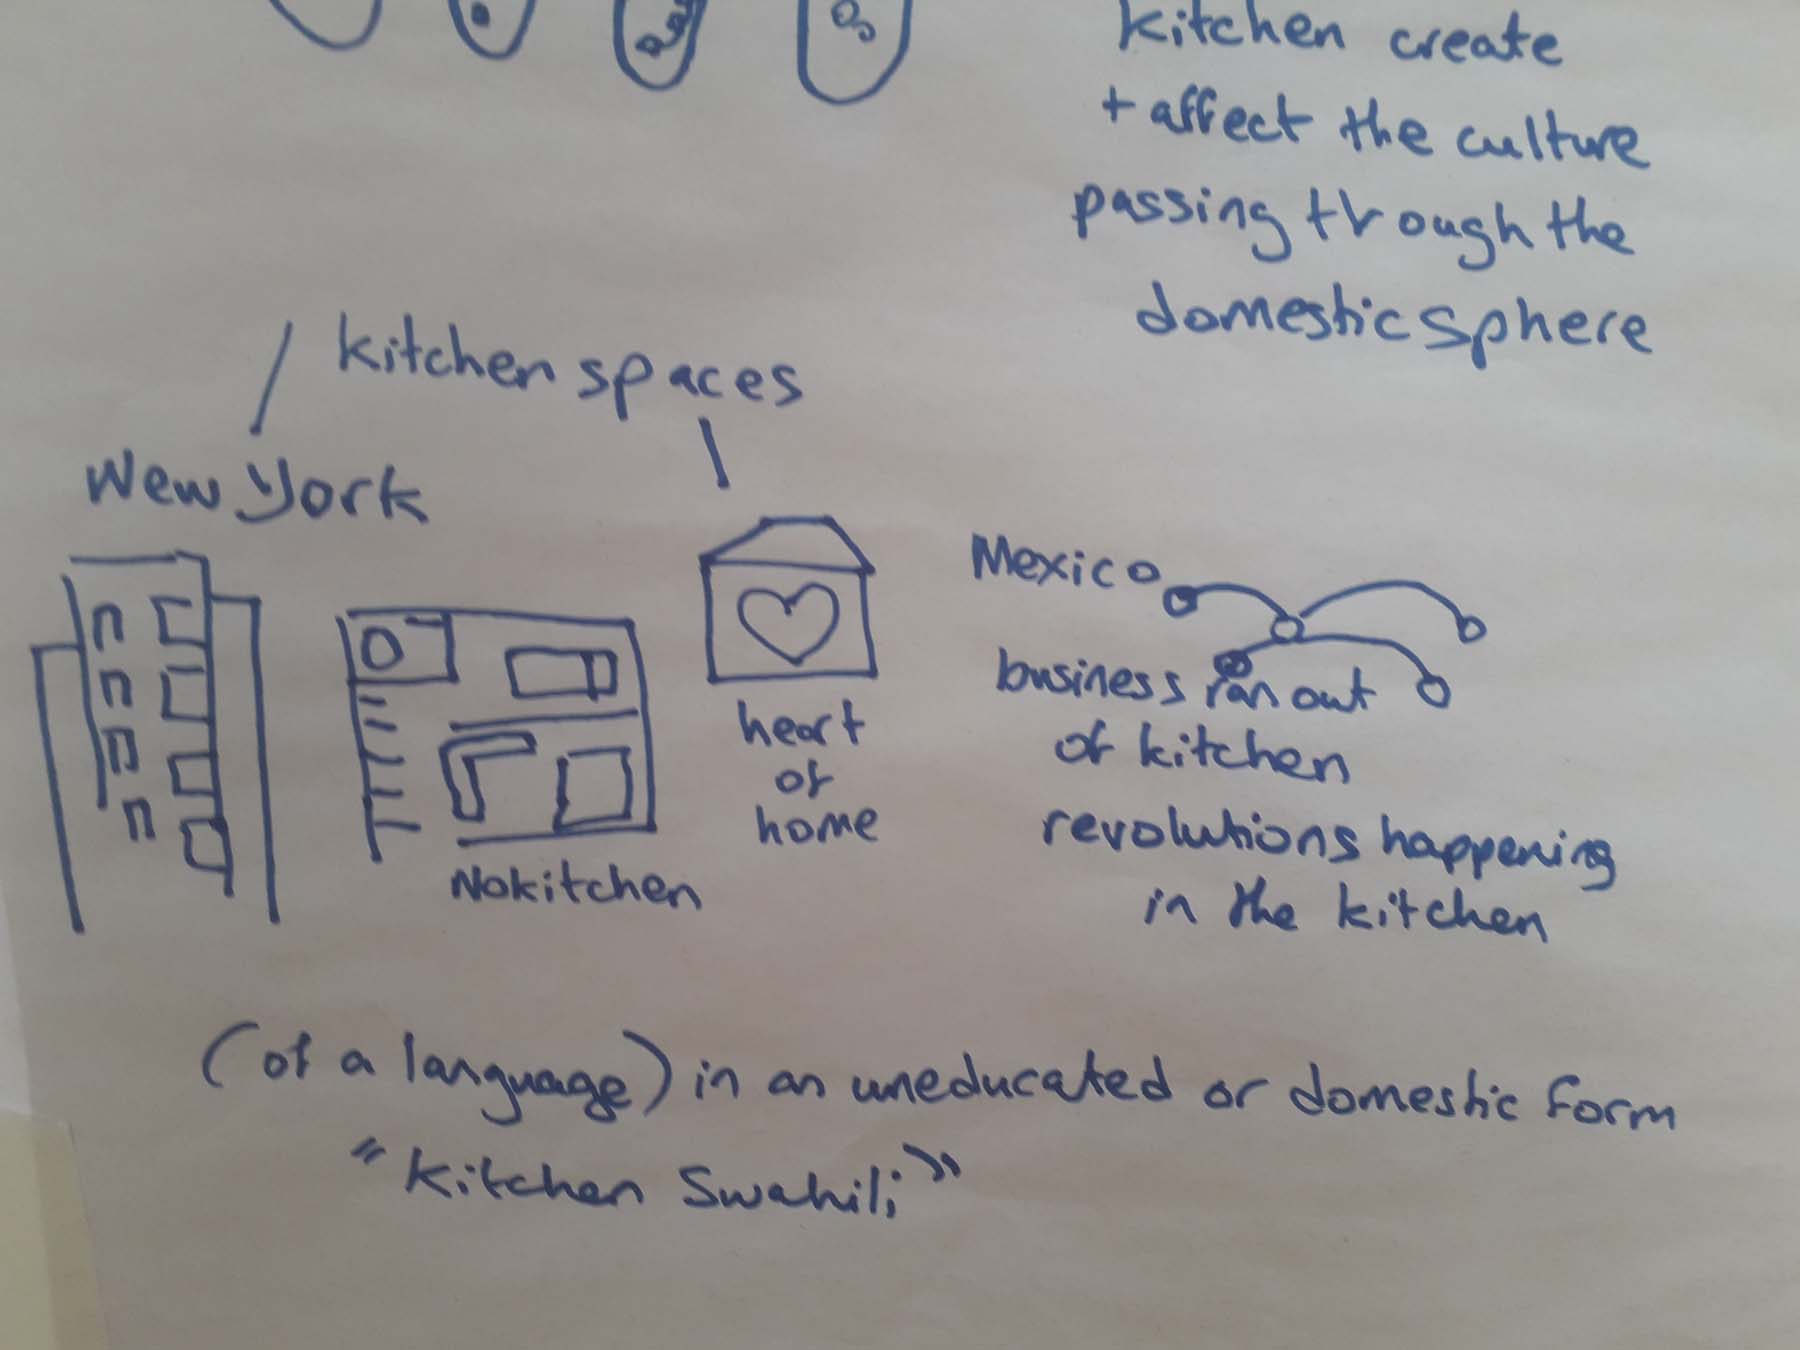 kitchen create
+ affect the culture
passing through the
domestic sphere
kitchen spaces
New York
No kitchen
heart
of
home
Mexico
business ran out
of kitchen
revolutions happening
in the kitchen
(of a language) in an uneducated or domestic form
"Kitchen Swahili"